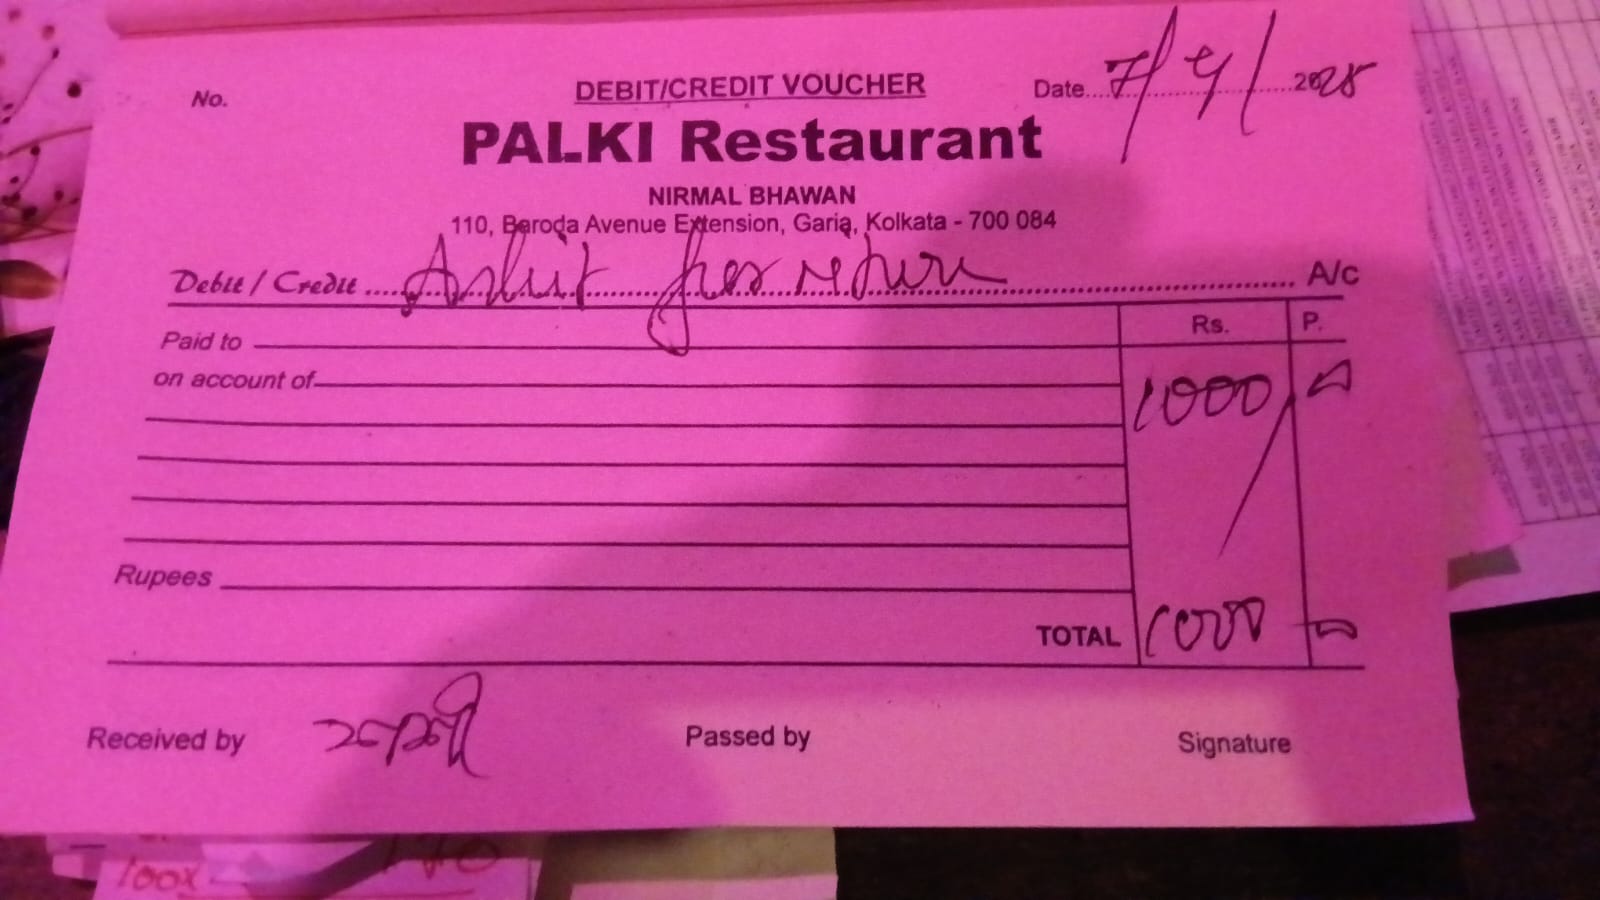 No.
DEBIT/CREDIT VOUCHER
Date 7/9/2025
PALKI Restaurant
NIRMAL BHAWAN
110, Baroda Avenue Extension, Garia, Kolkata - 700 084
Debit / Credit Ankit return A/c
Rs. P.
Paid to
on account of
1000
Rupees
TOTAL 1000
Received by
Passed by
Signature
100x